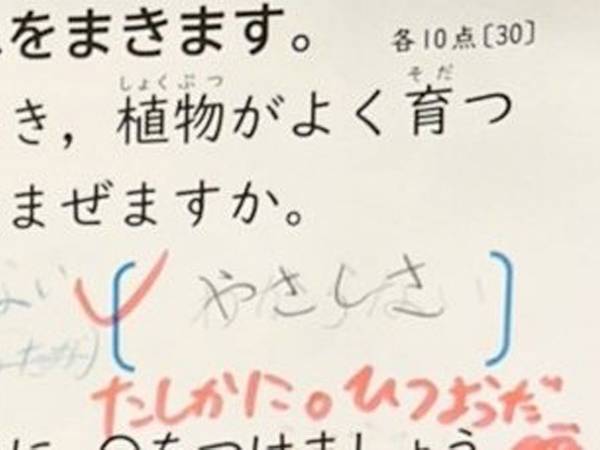 をまきます。 各10点〔30〕
き，植物がよく育つ
しょくぶつ そだ
まぜますか。
やさしさ
たしかに。ひつようだ
に、○をつけましょう